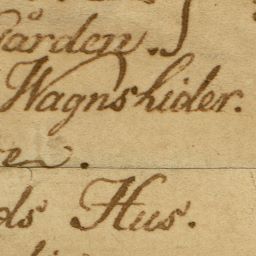 Gården.
Wagnshider.
ds Hus.